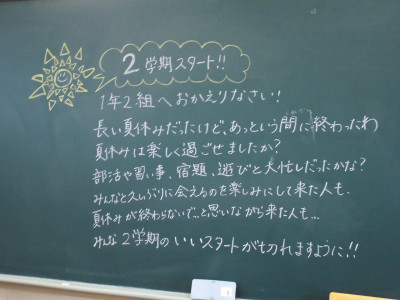 2学期スタート!!
1年2組へおかえりなさい!
長い夏休みだったけど、あっという間に終わったね
夏休みは楽しく過ごせましたか?
部活や習い事、宿題、遊びと大忙しだったかな?
みんなと久しぶりに会えるのを楽しみにして来た人も、
夏休みが終わらないで…と思いながら来た人も…
みんな2学期のいいスタートが切れますように!!